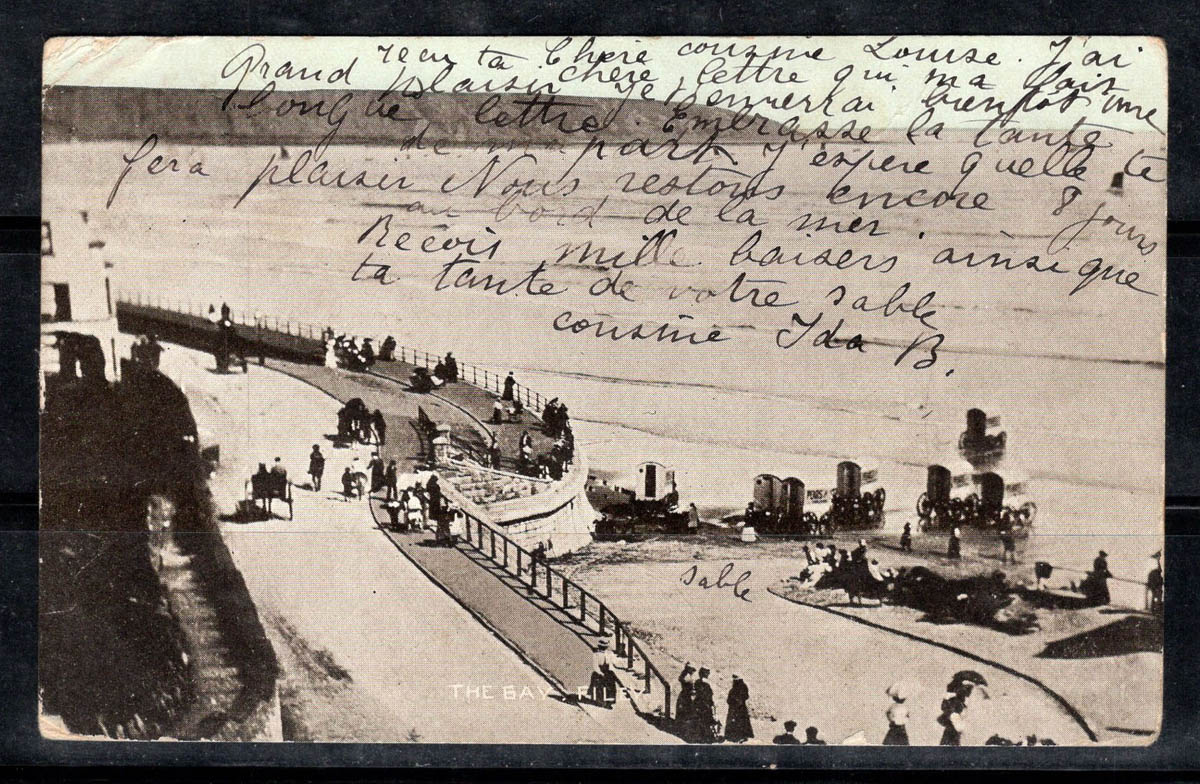 Chère cousine Louise. J'ai
reçu ta chère lettre qui m'a fait
Grand plaisir Je t'enverrai bientôt une
longue lettre. Embrasse la tante
de ma part. J'espère quelle te
fera plaisir Nous restons encore 8 jours
au bord de la mer.
Reçois mille baisers ainsi que
ta tante de votre
cousine Ida B.
sable
sable
THE BAY, FILEY